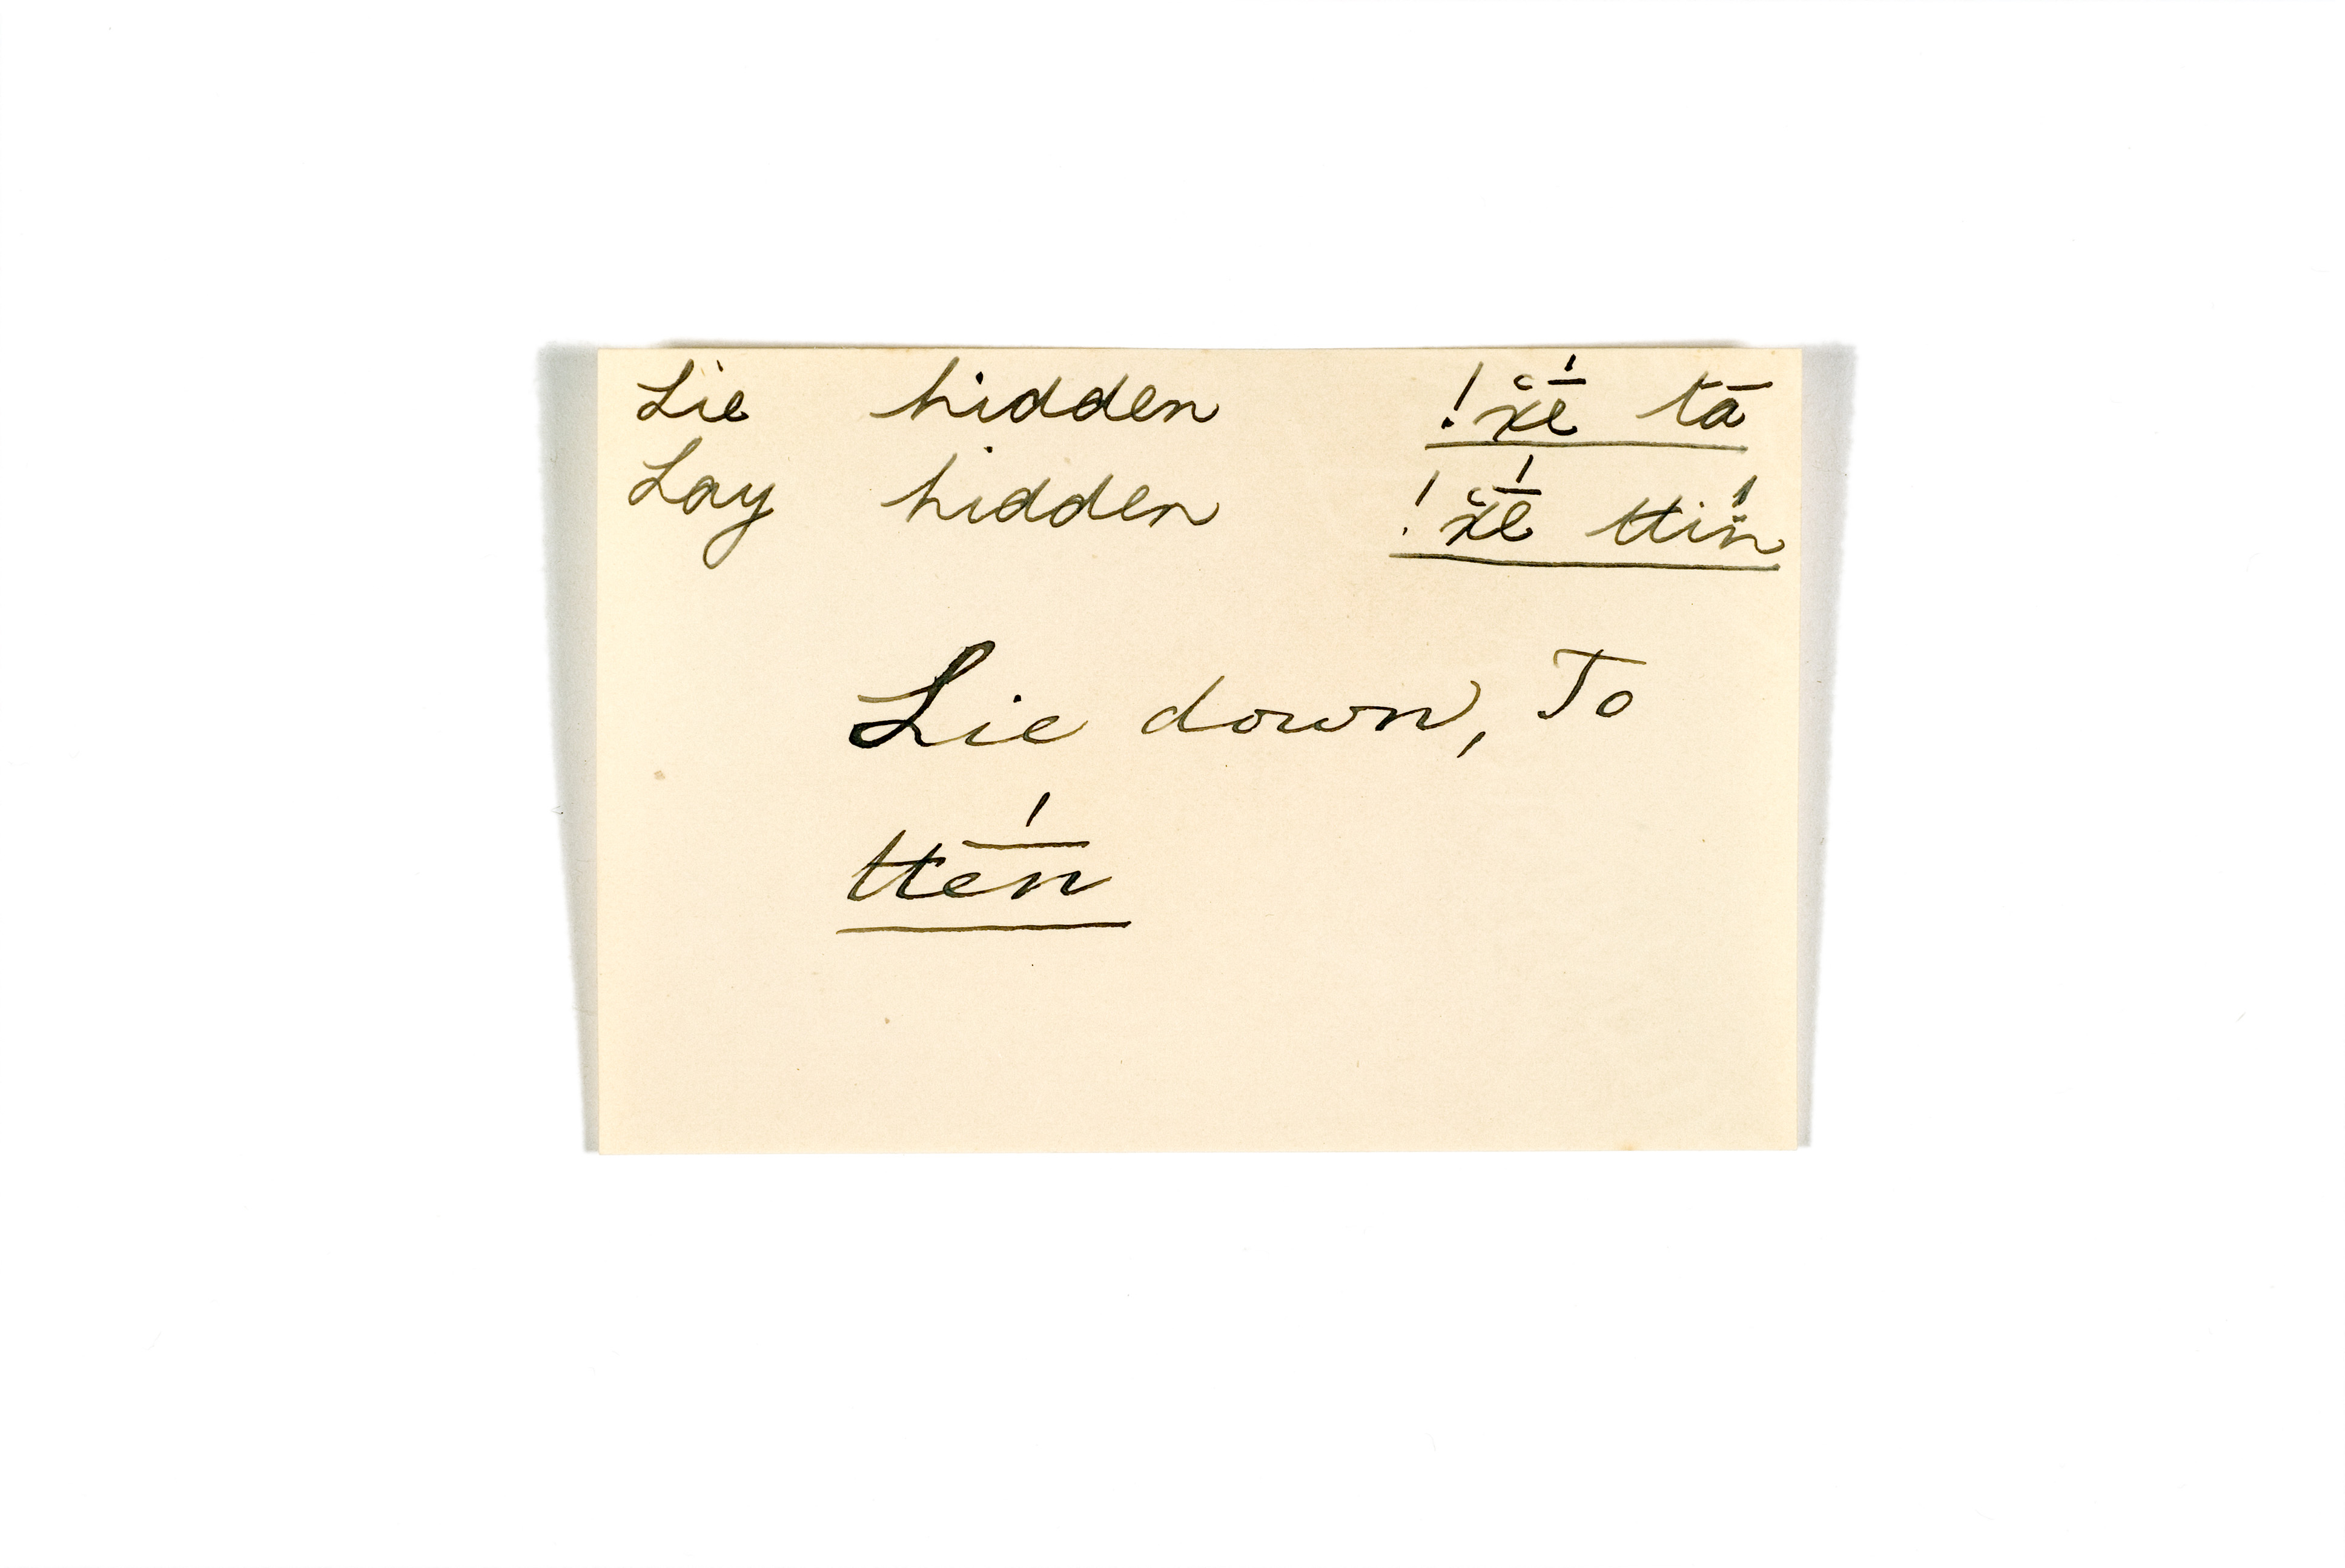 Lie hidden !x̆ḗ tā
Lay hidden !x̆ḗ ttïń
Lie down, To
ttḗn